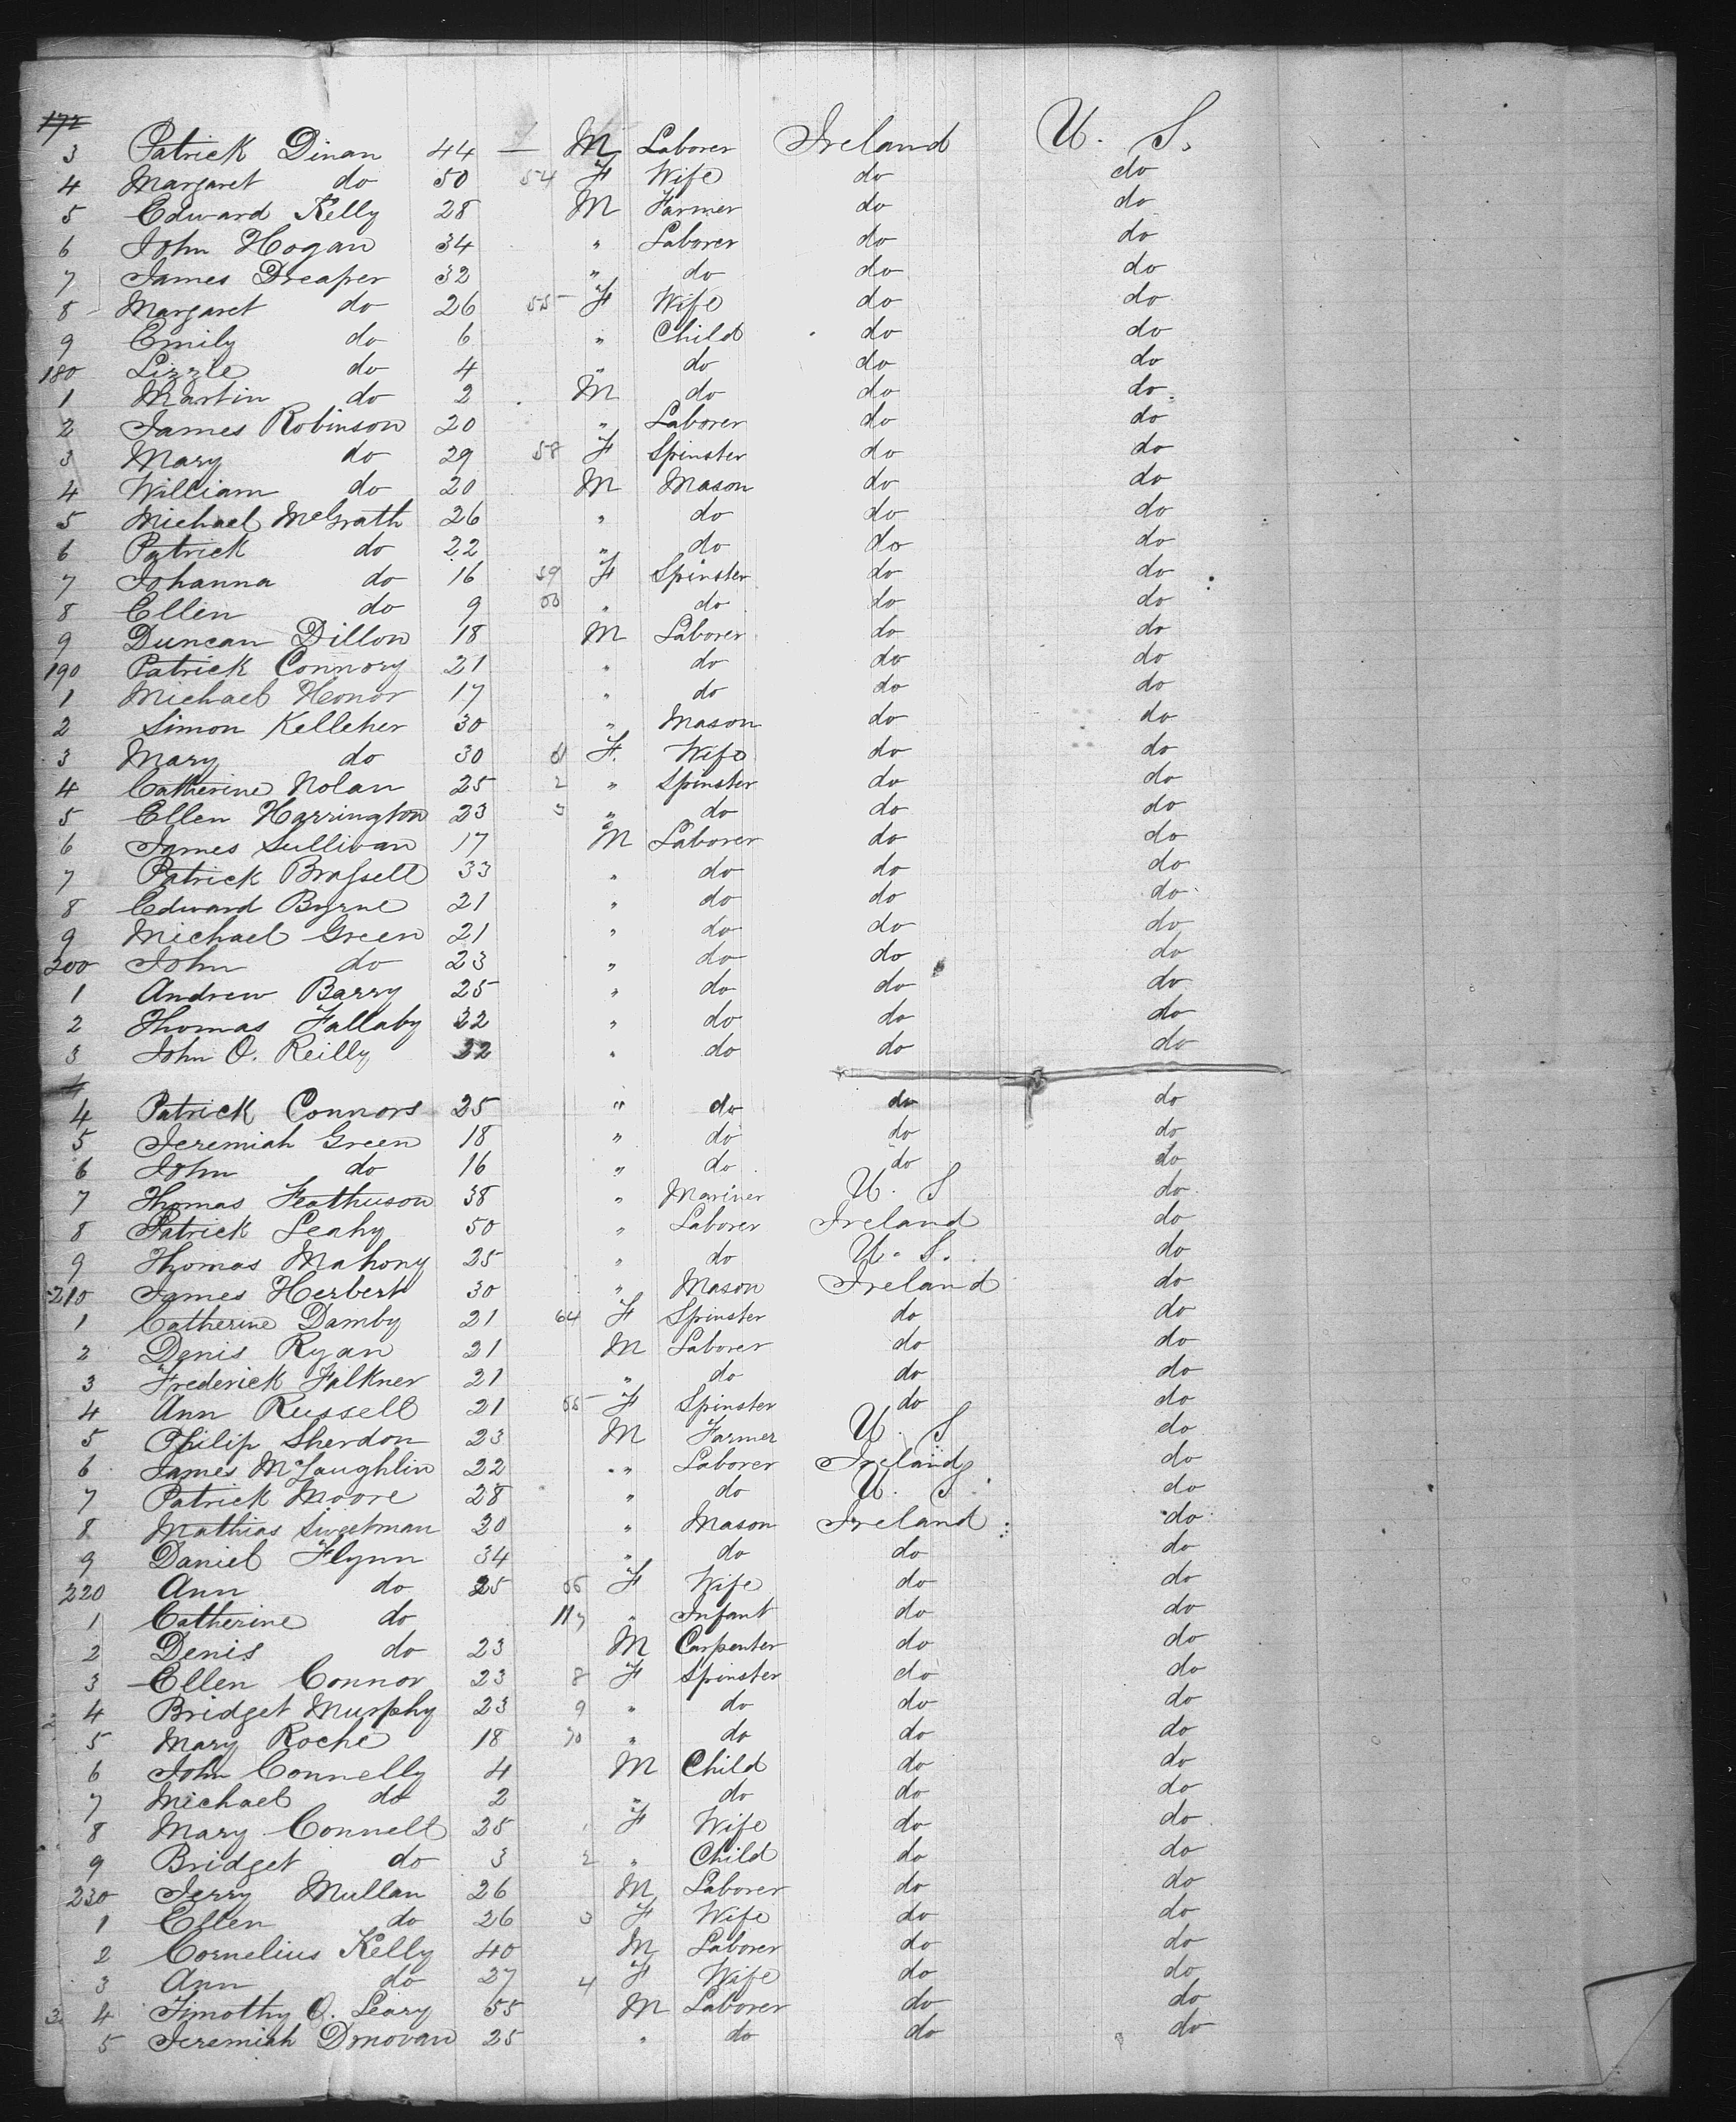 172
3 Patrick Dinan 44 — M Laborer Ireland U. S.
4 Margaret do 50 54 F Wife do do
5 Edward Kelly 28 M Farmer do do
6 John Hogan 34 " Laborer do do
7 James Dreaper 32 " do do do
8 Margaret do 26 55 F Wife do do
9 Emily do 6 " Child do do
180 Lizzie do 4 " do do do
1 Martin do 2 M do do do
2 James Robinson 20 " Laborer do do
3 Mary do 29 58 F Spinster do do
4 William do 20 M Mason do do
5 Michael McGrath 26 " do do do
6 Patrick do 22 " do do do
7 Johanna do 16 59 F Spinster do do
8 Ellen do 9 " do do do
9 Duncan Dillon 18 M Laborer do do
190 Patrick Connory 21 " do do do
1 Michael Honor 17 " do do do
2 Simon Kelleher 30 " Mason do do
3 Mary do 30 61 F. Wife do do
4 Catherine Nolan 25 2 " Spinster do do
5 Ellen Harrington 23 3 " do do do
6 James Sullivan 17 M Laborer do do
7 Patrick Brassell 33 " do do do
8 Edward Byrne 21 " do do do
9 Michael Green 21 " do do do
200 John do 23 " do do do
1 Andrew Barry 25 " do do do
2 Thomas Fallaby 22 " do do do
3 John O. Reilly 32 " do do do
4
4 Patrick Connors 25 " do do do
5 Jeremiah Green 18 " do do do
6 John do 16 " do do do
7 Thomas Feathuson 38 " Mariner U. S do
8 Patrick Leahy 50 " Laborer Ireland do
9 Thomas Mahony 25 " do U. S. do
210 James Herbert 30 " Mason Ireland do
1 Catherine Damby 21 64 F Spinster do do
2 Denis Ryan 21 M Laborer do do
3 Frederick Falkner 21 " do do do
4 Ann Russell 21 65 F Spinster do do
5 Philip Sherdon 23 M Farmer U. S do
6 James McLaughlin 22 " Laborer Ireland do
7 Patrick Moore 28 " do U. S do
8 Mathias Sweetman 30 " Mason Ireland do
9 Daniel Flynn 34 " do do do
220 Ann do 25 66 F Wife do do
1 Catherine do 11 " Infant do do
2 Denis do 23 M Carpenter do do
3 Ellen Connor 23 8 F Spinster do do
4 Bridget Murphy 23 9 " do do do
5 Mary Roche 18 70 " do do do
6 John Connelly 4 M Child do do
7 Michael do 2 " do do do
8 Mary Connell 25 F Wife do do
9 Bridget do 3 2 " Child do do
230 Jerry Mullan 26 M Laborer do do
1 Ellen do 26 3 F Wife do do
2 Cornelius Kelly 40 M Laborer do do
3 Ann do 27 4 F Wife do do
4 Timothy O. Leary 55 M Laborer do do
5 Jeremiah Dmovan 25 " do do do